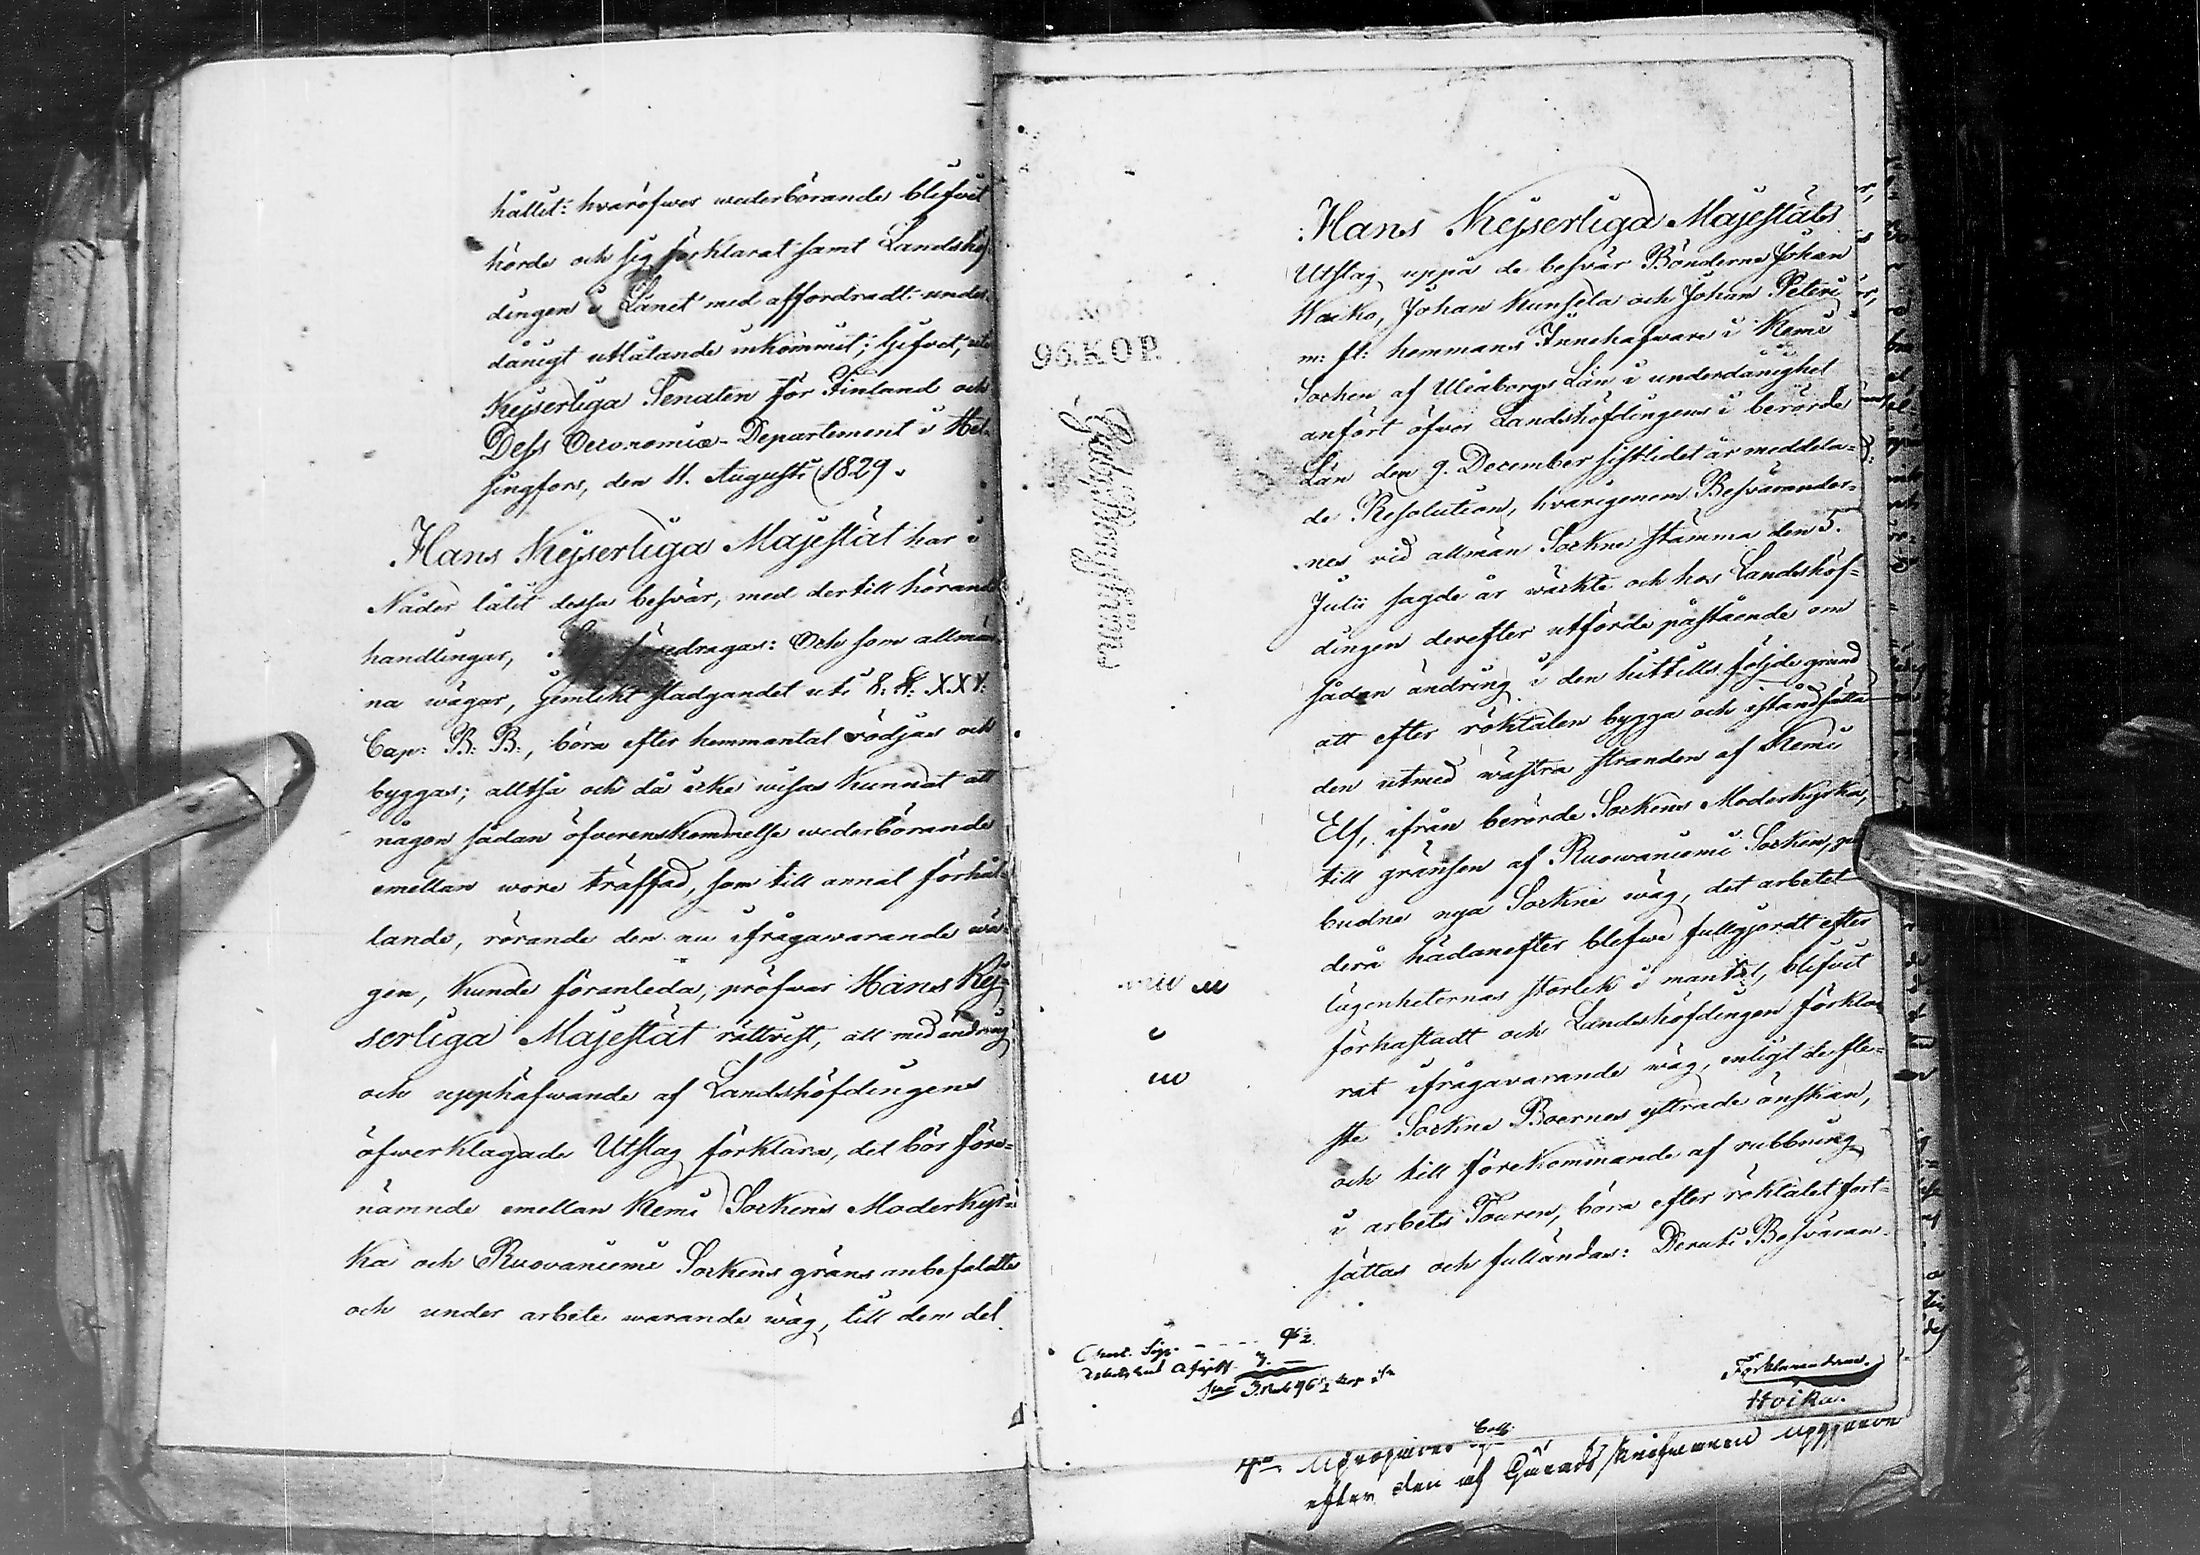 hållit: hvaröfwer wederbörande blifvit
hörde och sig förklarat samt Landshöf
dingen i Länet med affordradt under
dånigt utlåtande inkommit; Gifvet, uti
Kejserliga Senaten för Finland och
Dess Oeconomiæ-Departement i Hel-
singfors, den 11. Augusti 1829.
Hans Kejserliga Majestät har i
Nåder låtit dessa besvär, med dertill hörande
handlingar, föredragas: Och som allmän
na wägar, Gemlikt stadgandet uti 8. §. XXV.
Cap: B: B:, böra efter hemmantal rödjas och
byggas; alltså och då icke wisas kunnat att
någon sådan öfverenskommelse wederbörande
emellan wore träffad, som till annat förhål-
lande, rörande den nu ifrågawarande wä-
gen, kunde föranleda, pröfwar Hans Kej-
serliga Majestät rättvist, att med ändring
och upphäfwande af Landshöfdingens
öfwerklagade Utslag förklara, det bör före-
nämnde emellan Kemi Sockens Moderkyr-
ka och Ruovaniemi Sockens gräns anbefaldte
och under arbete warande wäg, till den del
96.KOP.
Hans Kejserliga Majestäts
Utslag uppå de besvär Bönderne Johan
Koiko, Johan Kunsela och Johan Peteri
m: fl: hemmans Innehafware i Kemi
Socken af Uleåborgs Län i underdånighet
anfört öfver Landshöfdingens i berörde
Län den 9. December sistlidet år meddela-
de Resolution, hvarigenom Besvärander-
nes vid allmän Sockne stämma den 5.
Julii sagde år wäckte och hos Landshöf-
dingen derefter utförde påstående om
sådan ändring i den hittills följde grund
att efter röktalen bygga och iståndsätta
den utmed wästra stranden af Kemi
Elf, ifrån berörde Sockens Moderkyrka,
till gränsen af Ruowaniemi Socken, på
budne nya Sockne wäg, det arbetet
derå hädanefter blefwe fullgjordt efter
lägenheternas storlek i mantal, blifvit
förkastadt och Landshöfdingen förkla-
rat ifrågavarande wäg, enligt de fle-
ste Sockne Boernes yttrade önskan,
och till förekommande af rubbning
i arbets Touren, böra efter röktalet fort-
sättas och fulländas: Deruti Besväran-
Chart. Sig. - - - - 96½
3. —
3. Rub 96½ kop Sr
Förklarandena.
Hoika.
efter den af